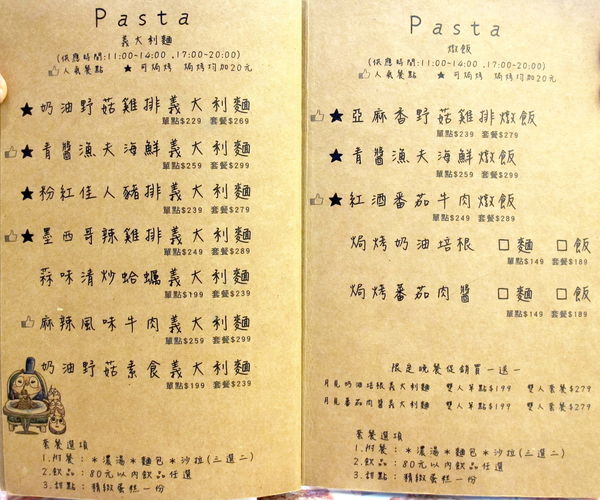 Pasta
義大利麵
(供應時間:11:00~14:00 ,17:00~20:00)
人氣餐點 ★ 可焗烤 焗烤均加20元
★ 奶油野菇雞排義大利麵
單點$229 套餐$269
★ 青醬漁夫海鮮義大利麵
單點$259 套餐$299
★ 粉紅佳人豬排義大利麵
單點$239 套餐$279
★ 墨西哥辣雞排義大利麵
單點$249 套餐$289
蒜味清炒蛤蠣義大利麵
單點$199 套餐$239
麻辣風味牛肉義大利麵
單點$259 套餐$299
奶油野菇素食義大利麵
單點$199 套餐$239
套餐選項
1.附餐:*濃湯*麵包*沙拉(三選二)
2.飲品:80元以內飲品任選
3.甜點:精緻蛋糕一份
Pasta
燉飯
(供應時間:11:00~14:00 ,17:00~20:00)
人氣餐點 ★ 可焗烤 焗烤均加20元
★ 亞麻香野菇雞排燉飯
單點$239 套餐$279
★ 青醬漁夫海鮮燉飯
單點$259 套餐$299
★ 紅酒番茄牛肉燉飯
單點$249 套餐$289
焗烤奶油培根 □麵 □飯
單點$149 套餐$189
焗烤番茄肉醬 □麵 □飯
單點$149 套餐$189
限定晚餐促銷買一送一
月亂奶油培根義大利麵 雙人單點$199 雙人套餐$279
月亂番茄肉醬義大利麵 雙人單點$199 雙人套餐$279
套餐選項
1.附餐:*濃湯*麵包*沙拉(三選二)
2.飲品:80元以內飲品任選
3.甜點:精緻蛋糕一份